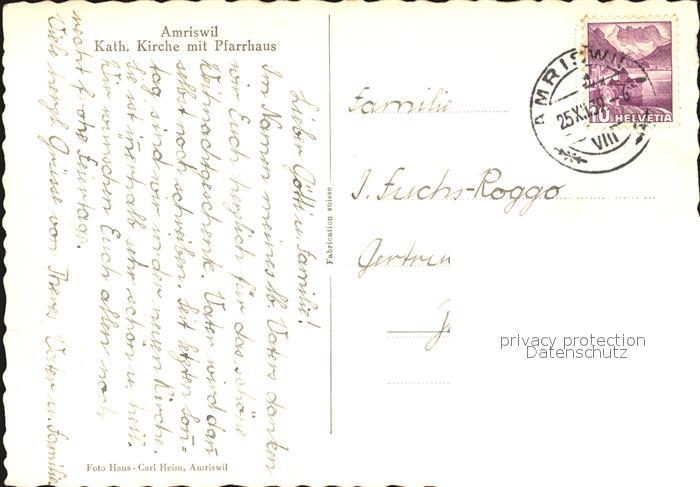 Amriswil
Kath. Kirche mit Pfarrhaus
Lieber Götti u. Familie!
Im Namen meines lb. Vaters danken
wir Euch herzlich für das schöne
Weihnachtsgeschenk. Vater wird dan
selbst noch schreiben. Seit letzten Son-
tag sind wir in der neuen Kirche.
Sie ist innerhalb sehr schön u. hell.
Wir wünschen Euch allen noch
recht frohe Feiertage.
Viele herzl. Grüsse von Theres, Vater u. Familie
Foto Haus - Carl Heim, Amriswil
Fabrication suisse
AMRISWIL
25.XII.39
VIII
10 HELVETIA
Familie
J. Fuchs-Roggo
Gertru
privacy protection
Datenschutz